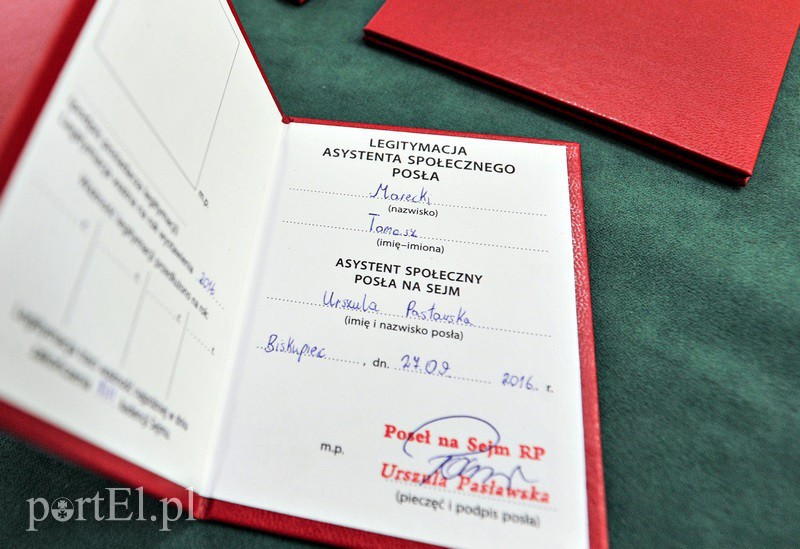 m.p.
Legitymacja ważna na rok wystawienia
Ważność legitymacji przedłużono na rok:
2016
r.
r.
r.
LEGITYMACJA
ASYSTENTA SPOŁECZNEGO
POSŁA
Marecki
(nazwisko)
Tomasz
(imię-imiona)
ASYSTENT SPOŁECZNY
POSŁA NA SEJM
Urszula Pasławska
(imię i nazwisko posła)
Biskupiec, dn. 27.09 2016 r.
m.p.
Poseł na Sejm RP
Urszula Pasławska
(pieczęć i podpis posła)
portEl.pl